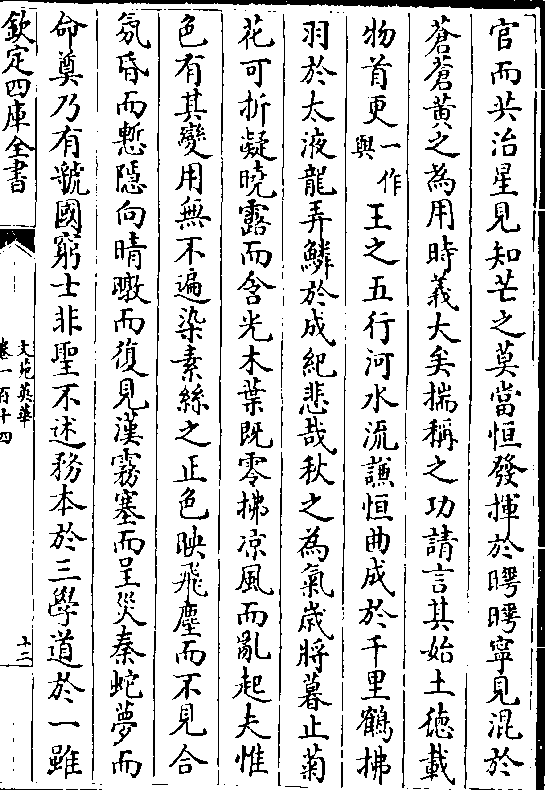 官而共治星見知芒之莫當恒發揮於𣈶𣈶寧見混於
蒼蒼黄之為用時義大矣揣稱之功請言其始土徳載
物首更一作與王之五行河水流謙恒曲成於千里鶴拂
羽於太液龍弄鱗於成紀悲哉秋之為氣歲將暮止菊
花可折凝曉露而含光木葉既零拂凉風而亂起夫惟
色有其變用無不遍染素絲之正色映飛塵而不見合
氛昏而慙隱向晴暾而復見漢霧塞而呈災秦蛇夢而
命奠乃有虢國窮士非聖不述務本於三學道於一雖
欽定四庫全書
文苑英華
卷一百十四
十二